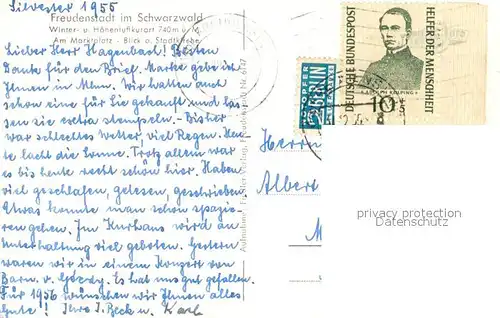 Silvester 1955
Freudenstadt im Schwarzwald
Winter- u. Höhenluftkurort 740 m ü. M.
Am Marktplatz - Blick a. Stadtkirche
Lieber Herr Hagenbach! Besten
Dank für den Brief. Marke gebe ich
Ihnen in Mchn. Wir hatten auch
schon eine für Sie gekauft und las-
sen sie extra stempeln. - Bisher
war schlechtes Wetter, viel Regen. Heu-
te lacht die Sonne. Trotz allem war
es bis heute recht schön hier. Haben
viel geschlafen, gelesen, geschrieben.
Etwas konnte man schon spazie-
ren gehen. Im Kurhaus wird an
Unterhaltung viel geboten. Gestern
waren wir in einem Konzert von
Barn. v. Géczy. Es hat uns gut gefallen.
Für 1956 wünschen wir Ihnen alles
Gute! Ihre J. Beck u. Karl
NOTOPFER
2 BERLIN
STEUERMARKE
DEUTSCHE BUNDESPOST
HELFER DER MENSCHHEIT
ADOLPH KOLPING
10
Herrn
Albert
M
privacy protection
Datenschutz